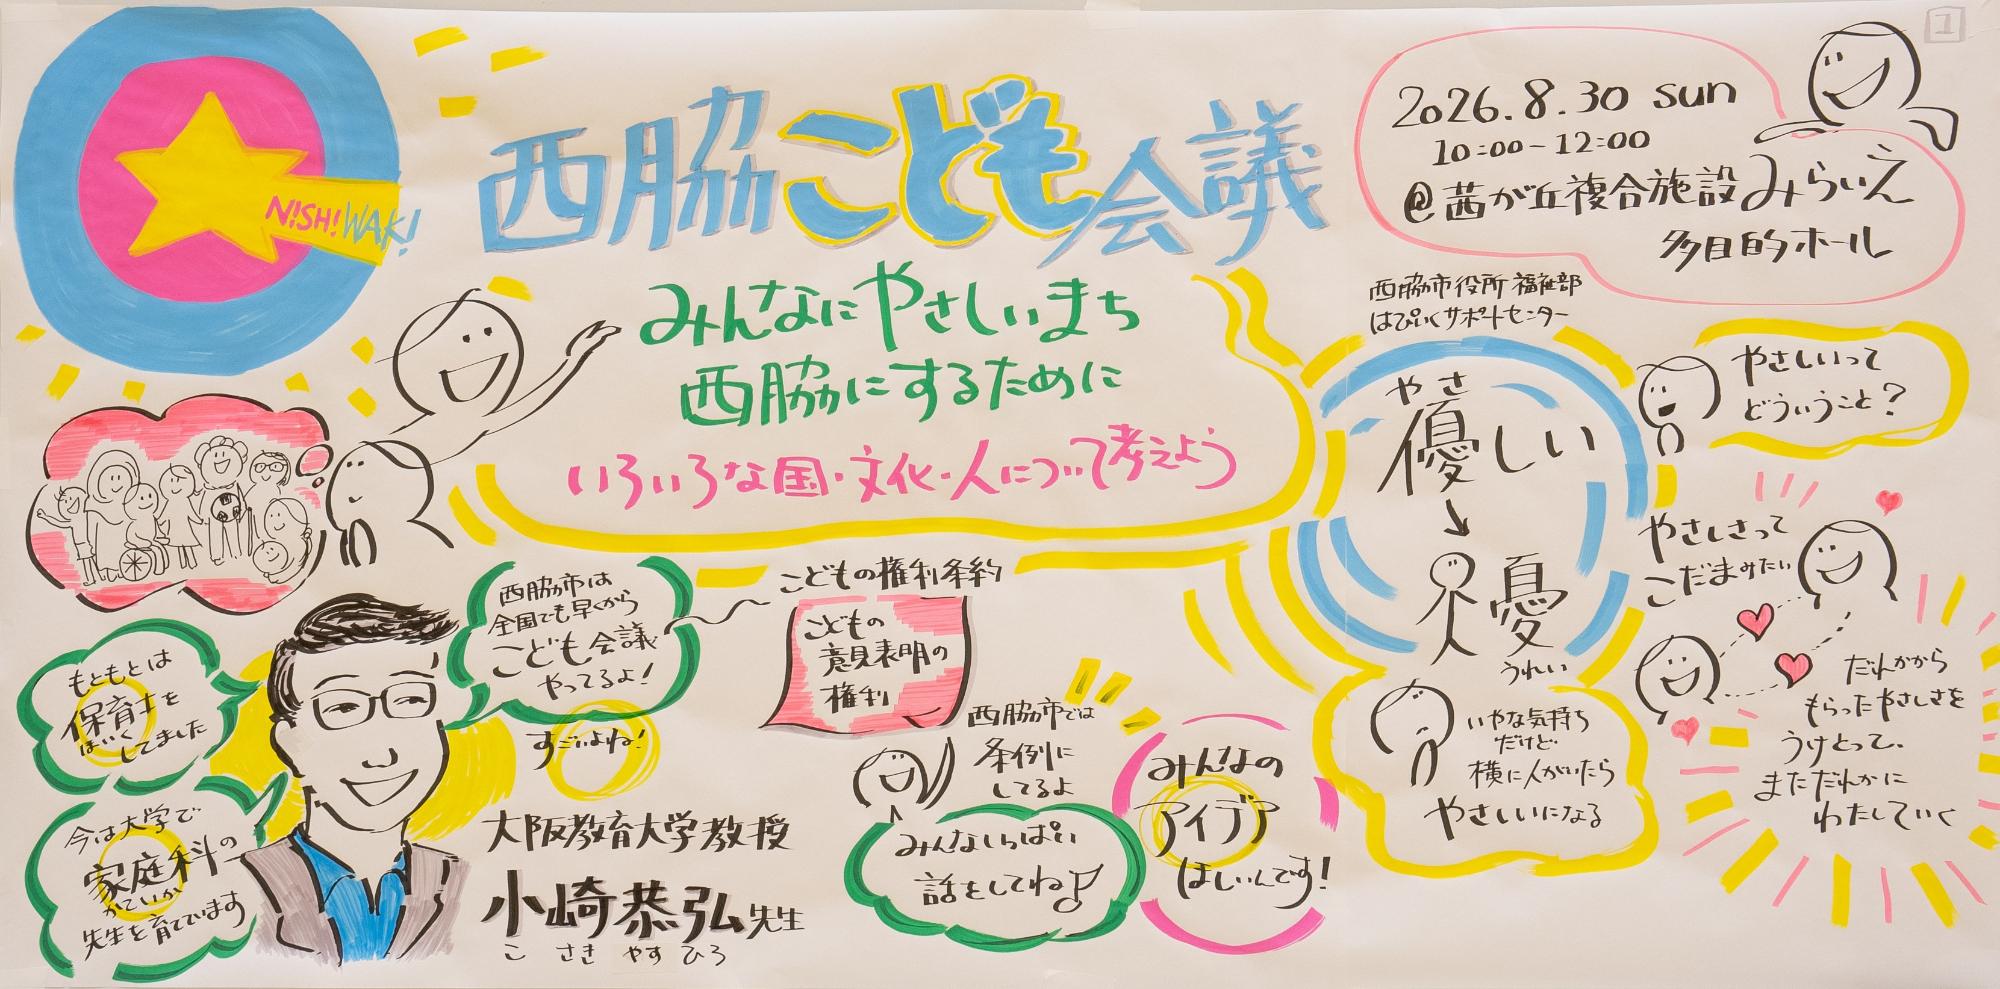 1
N!SH!WAK!
西脇こども会議
2026.8.30 sun
10:00-12:00
@茜が丘複合施設みらいえ
多目的ホール
西脇市役所 福祉部
はぴいくサポートセンター
みんなにやさしいまち
西脇にするために
いろいろな国・文化・人について考えよう
やさ
優しい
憂
うれい
やさしいって
どういうこと?
いやな気持ち
だけど
横に人がいたら
やさしいになる
やさしさって
こだまみたい
だれかから
もらったやさしさを
うけとって、
まただれかに
わたしていく
もともとは
保育士を
ほいく
してました
今は大学で
家庭科の
かていか
先生を育てています
西脇市は
全国でも早くから
こども会議
やってるよ!
すごいよね!
大阪教育大学教授
小崎恭弘先生
こ さき やす ひろ
こどもの権利条約
こどもの
意見表明の
権利
西脇市では
条例に
してるよ
みんないっぱい
話をしてね♪
みんなの
アイデア
ほしいんです!